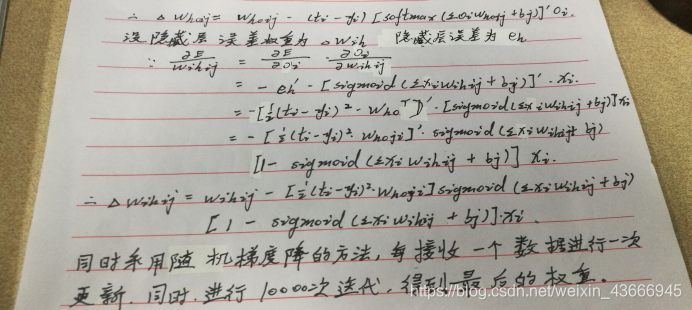 ∴ △ Whoij = Whoij - (ti - yi) [softmax (ΣOiWhoij + bj)]' Oi.
设 隐藏层 误差权重为 △Wih 隐藏层误差为 eh
∵ ∂E/Wihij = ∂E/∂Oi · ∂Oi/∂wihij
= - eh' · [sigmoid (ΣxiWihij + bj)]' · xi.
= -[½(ti - yi)² · Who^T]' · [sigmoid (ΣxiWihij + bj)]' xi
= - [½(ti - yi)² · Whoji]' · sigmoid (ΣxiWihij + bj)
[1 - sigmoid (ΣxiWihij + bj)] xi.
∴ △Wihij = Wihij - [½(ti - yi)² · Whoji]' sigmoid (ΣxiWihij + bj)
[1 - sigmoid (ΣxiWihij + bj)] · xi.
同时采用随机梯度降的方法, 每接收一个数据进行一次
更新. 同时. 进行 10000次迭代. 得到最后的权重.
https://blog.csdn.net/weixin_43666945